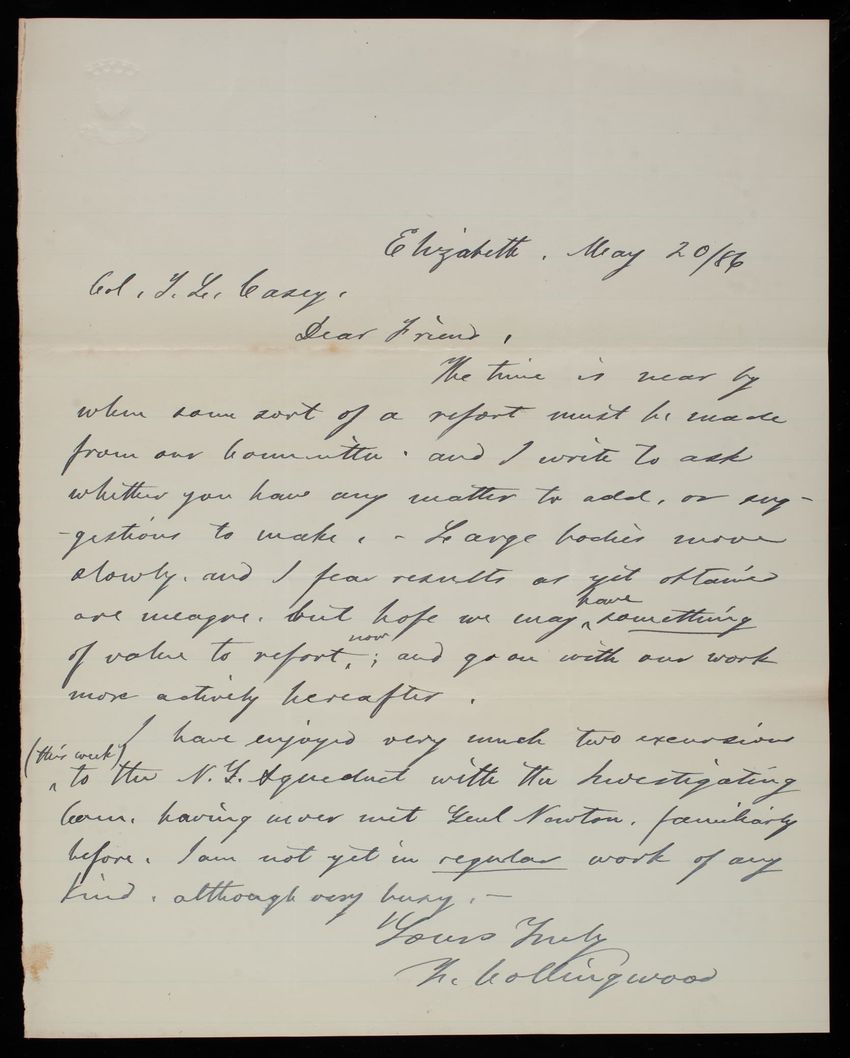 Elizabeth, May 20/86
Col. T. L. Casey.
Dear Friend,
The time is near by
when some sort of a report must be made
from our Committee. and I write to ask
whether you have any matter to add, or sug-
-gestions to make. - Large bodies move
slowly. and I fear results as yet obtained
are meagre. but hope we may have something
of value to report now; and go on with our work
more actively hereafter.
I have enjoyed very much two excursions
(this week) to the N.Y. Aqueduct with the Investigating
Com. having never met Genl Newton. familiarly
before. I am not yet in regular work of any
kind. although very busy. -
Yours Truly
F. Collingwood